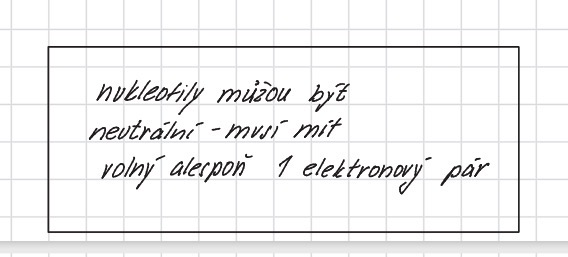 nukleofily můžou být
neutrální - musí mít
volný alespoň 1 elektronový pár